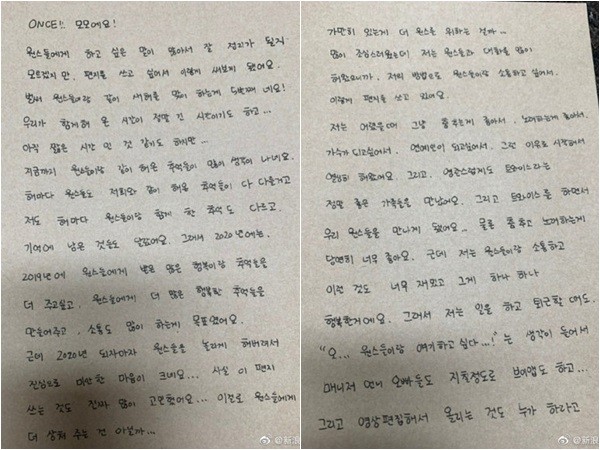 ONCE!! 모모에요!
원스들에게 하고 싶은 말이 많아서 잘 정리가 될지
모르겠지만, 편지를 쓰고 싶어서 이렇게 써보게 됐어요.
벌써 원스들이랑 같이 새해를 맞이 하는게 5번째네요!
우리가 함께해 온 시간이 정말 긴 시간이기도 하고...
아직 짧은 시간 인 것 같기도 하지만...
지금까지 원스들이랑 같이 해온 추억들이 많이 생각이 나네요.
해마다 원스도 저희와 같이 해온 추억들이 다 다를거고
저도 해마다 원스들이랑 함께 한 추억도 다르고,
기억에 남은 것들도 달랐어요. 그래서 2020년에는,
2019년에 원스들에게 받은 많은 행복이랑 추억들을
더 주고싶고, 원스들에게 더 많은 행복한 추억들을
만들어주고, 소통도 많이 하는게 목표였어요.
근데 2020년 되자마자 원스들을 놀라게 해버려서
진심으로 미안한 마음이 크네요... 사실 이 편지
쓰는 것도 진짜 많이 고민했어요... 이걸로 원스들에게
더 상처 주는 건 아닐까...
가만히 있는게 더 원스를 위하는 걸까...
많이 조심스러웠는데 저는 원스들과 대화를 많이
해왔으니까, 저의 방법으로 원스들이랑 소통하고 싶어서,
이렇게 편지를 쓰고 있어요.
저는 어렸을때 그냥 춤추는게 좋아서, 노래하는게 좋아서,
가수가 되고싶어서, 연예인이 되고싶어서, 그런 이유로 시작해서
열심히 해왔어요. 그리고, 영광스럽게도 트와이스라는
정말 좋은 가족들을 만났어요. 그리고 트와이스를 하면서
우리 원스들을 만나게 됐어요.. 물론 춤추고 노래하는게
당연히 너무 좋아요. 근데 저는 원스들이랑 소통하고
이런 것도 너무 재밌고 그게 하나 하나
행복한거에요. 그래서 저는 일을 하고 퇴근할 때도,
"오... 원스들이랑 얘기하고 싶다...!" 는 생각이 들어서
매니저 언니 오빠들도 지칠정도로 브이앱도 하고...
그리고 영상편집해서 올리는 것도 누가 하라고